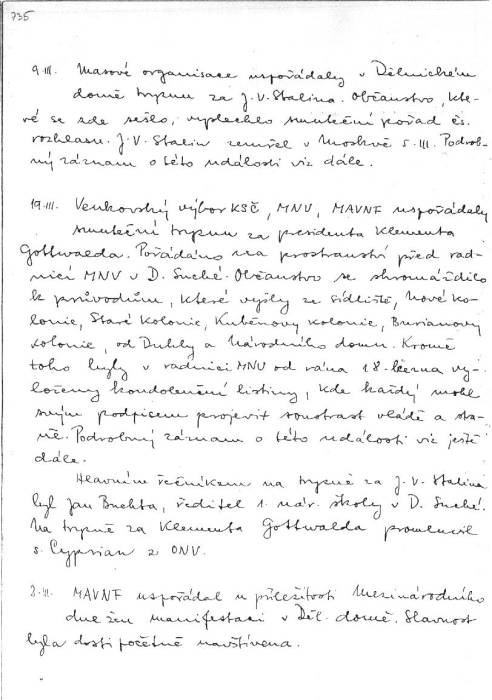 735
9.III. Masové organisace uspořádaly v Dělnickém
domě tryznu za J.V. Stalina. Občanstvo, kte-
ré se zde sešlo, vyslechlo smuteční pořad čs.
rozhlasu. J.V. Stalin zemřel v Moskvě 5.III. Podrob-
ný záznam o této události viz dále.
19.III. Venkovský výbor KSČ, MNV, MAVNF uspořádaly
smuteční tryznu za presidenta Klementa
Gottwalda. Pořádáno na prostranství před rad-
nicí MNV v D. Suché. Občanstvo se shromáždilo
k průvodům, které vyšly ze sídliště, Nové ko-
lonie, Staré kolonie, Kuběnovy kolonie, Burianovy
kolonie, od Dukly a Národního domu. Kromě
toho byly v radnici MNV od rána 18. března vy-
loženy kondolenční listiny, kde každý mohl
svým podpisem projevit soustrast vládě a stra-
ně. Podrobný záznam o této události viz ještě
dále.
Hlavním řečníkem na tryzně za J.V. Stalina
byl Jan Buchta, ředitel 1. nár. školy v D. Suché.
Na tryzně za Klementa Gottwalda promluvil
s. Cyprian z ONV.
MAVNF uspořádal u příležitosti Mezinárodního
dne žen manifestaci v Děl. domě. Slavnost
byla dosti početně navštívena.